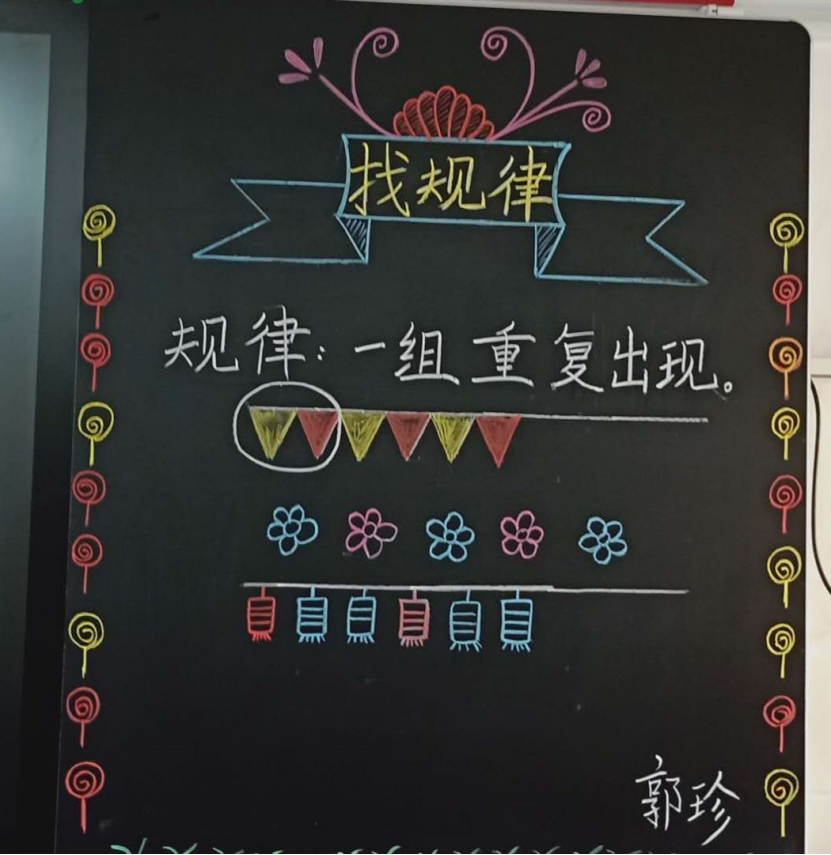 找规律
规律:一组重复出现。
郭珍